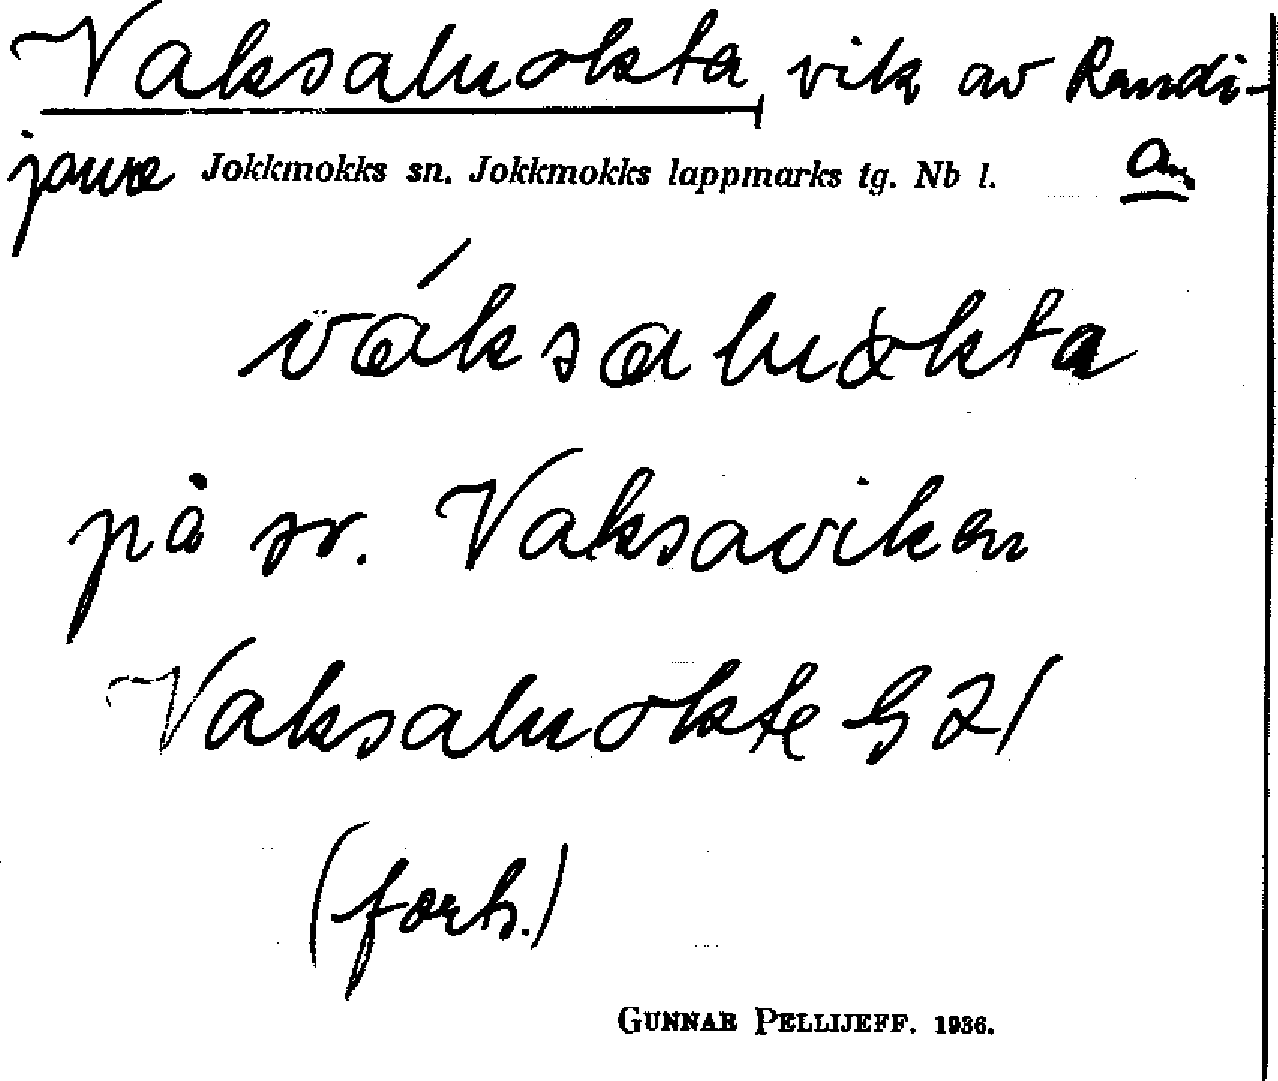 Vaksaluokta, vik av Randi-
jaure Jokkmokks sn. Jokkmokks lappmarks tg. Nb l.
váksaluokta
på sv. Vaksaviken
Vaksaluokte G 21
(forts.)
GUNNAR PELLIJEFF. 1936.